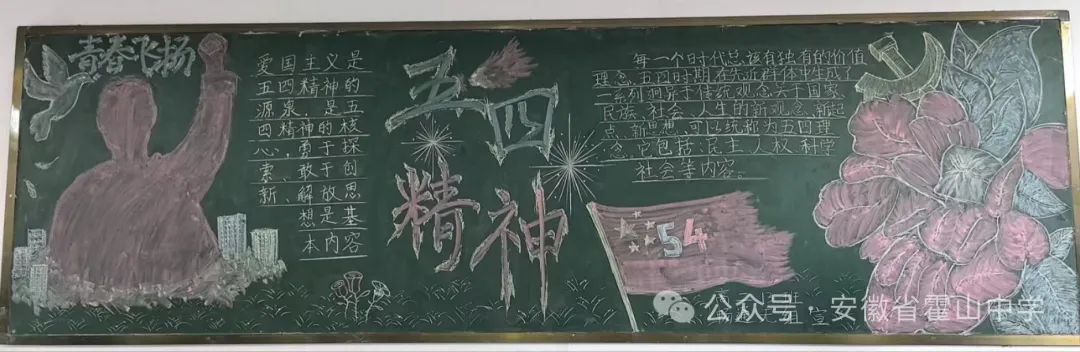 青春飞扬
爱国主义是
五四精神的
源泉、是五
四精神的核
心,勇于探
索、敢于创
新、解放思
想是基
本内容
五四
精神
每一个时代总该有独有的价值
理念,五四时期在先近群体中生成了
一系列洞异于传统观念关于国家、
民族、社会、人生的新观念、新起
点、新思想、可以统称为五四理
念,它包括:民主、人权、科学
社会等内容。
54
公众号·安徽省霍山中学
宣